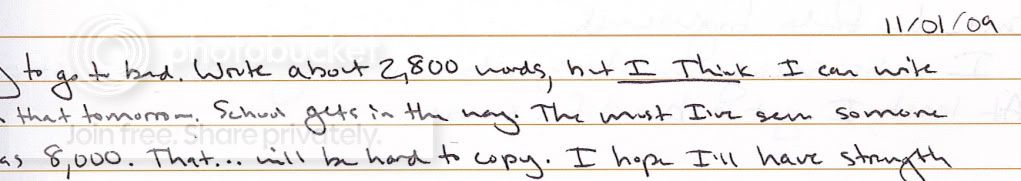 11/01/09
to go to bed. Wrote about 2,800 words, but I Think I can write
that tomorrow. School gets in the way. The most I've seen somone
as 8,000. That... will be hard to copy. I hope I'll have strength
photobucket
Join free. Share privately.